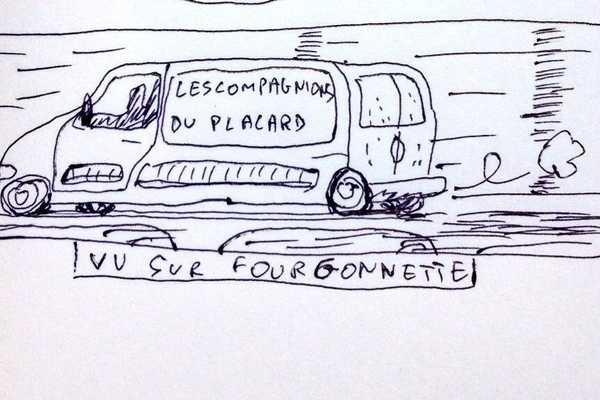 LES COMPAGNIONS
DU PLACARD
VU SUR FOURGONNETTE